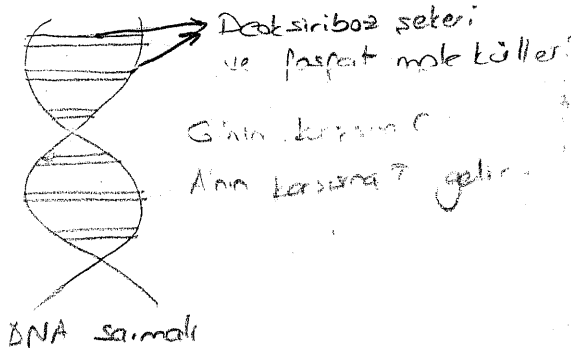 Deoksiriboz şekeri
ve fosfat molekülleri
G'nin karşısına C
A'nın karşısına T gelir.
DNA sarmalı